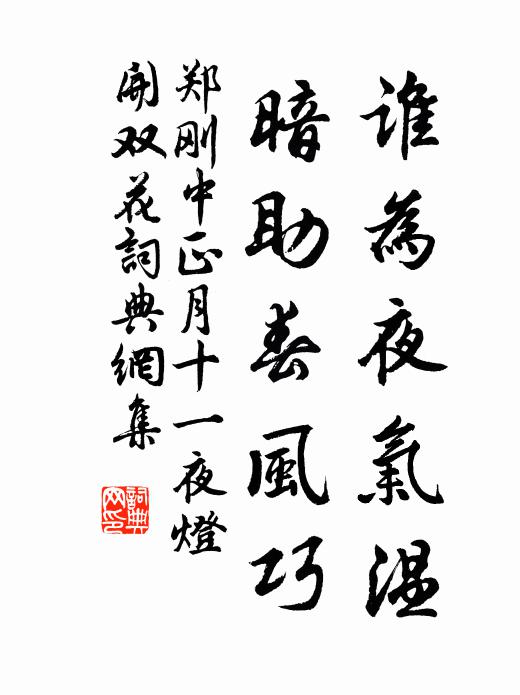 誰為夜氣溫
暗助春風巧
郑刚中正月十一夜燈
開双花詞典網集
詞典
网印